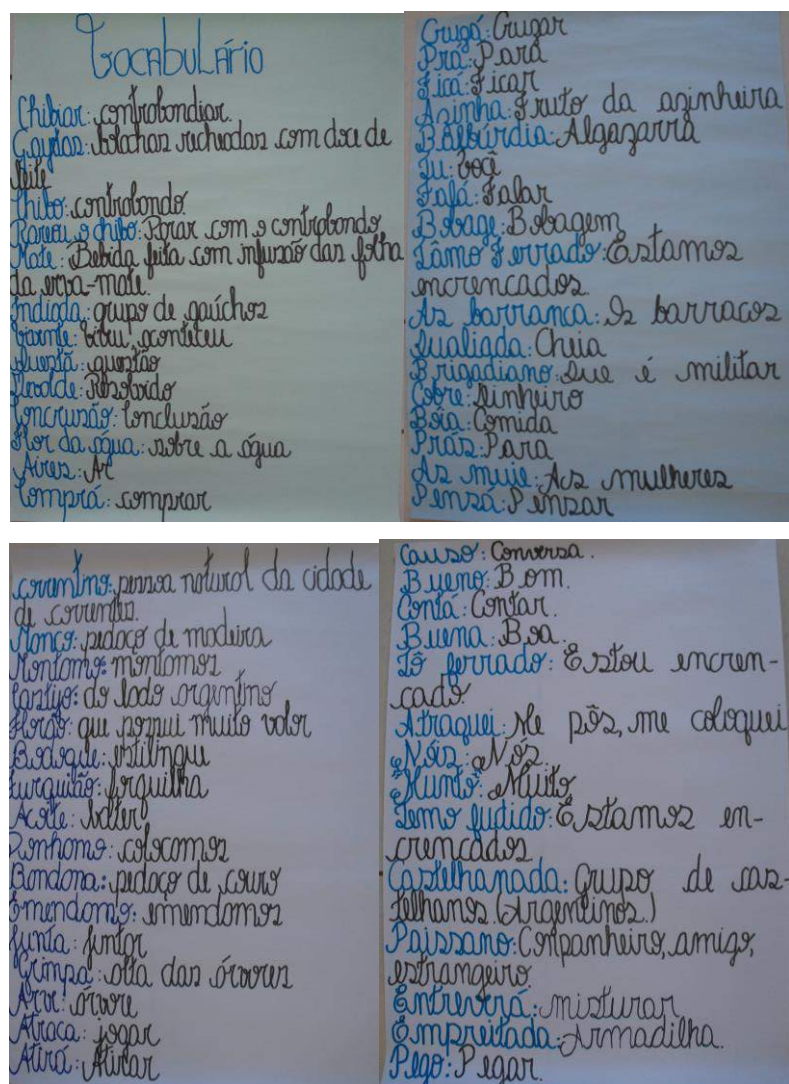 Vocabulário
Chibiar: controbondiar.
Gaytas: bolachas recheadas com doce de
leite
Chibo: controbondo.
o chibo: Porar com o controbondo
Mate: Bebida feita com infusão das folha
da erva-mate.
Indiada: grupo de gaúchos
aconteceu
questão
Resolvido
Concrusão: Conclusão
Flor da água: sobre a água
Aires: Ar
Comprá: comprar
Cruzá: Cruzar
Prá: Para
Ficá: Ficar
Azinha: Fruto da azinheira
Balbúrdia: Algazarra
Tu: você
Falá: Falar
Bobage: Bobagem
Tâmo Ferrado: Estamos
encrencados.
As barranca: Os barracos
Cheia
Brigadiano: Que é militar
Cobre: Dinheiro
Boia: Comida
Prás: Para
As muie: As mulheres
Pensá: Pensar
correntino: pessoa natural da cidade
de correntes.
pedaço de madeira
Montomo: montomos
do lado argentino
que possui muito valor
Bodoque: estilingue
Furquilão: forquilha
Acolte:
Ponhomo: colocomos
Bondona: pedaço de couro
Emendomo: emendomos
Junta: Juntar
Grimpa: alta das árvores
Arve: árvore
Atraca: jogar
Atirá: Atirar
Causo: Conversa.
Bueno: Bom.
Contá: Contar.
Buena: Boa.
Tô ferrado: Estou encren-
cado.
Atraquei: Me pôs, me coloquei
Nóis: Nós.
Munto: Muito
Temo fudido: Estamos en-
crencados
Castelhanada: Grupo de cas-
telhanos. (Argentinos.)
Paissano: Conpanheiro, amigo,
estrangeiro.
Entreverá: misturar
Empreitada: Armadilha.
Pego: Pegar.